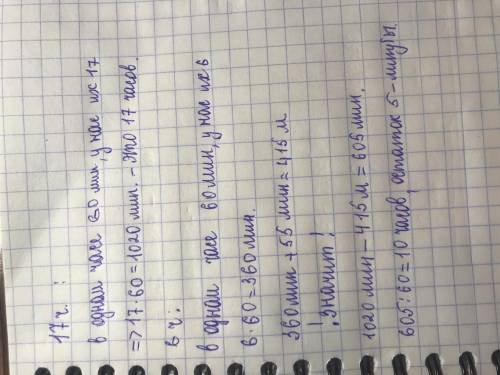 17 ч. :
в одном часе 60 мин, у нас их 17
=> 17·60=1020 мин. - это 17 часов.
6 ч:
в одном часе 60 мин, у нас их 6
6·60=360 мин.
360 мин + 55 мин = 415 м
! Значит !
1020 мин - 415 м = 605 мин.
605:60=10 часов, остаток 5 - минуты.